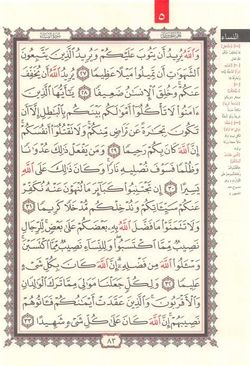 ٥
النساء
وَٱللَّهُ يُرِيدُ أَن يَتُوبَ عَلَيْكُمْ وَيُرِيدُ ٱلَّذِينَ يَتَّبِعُونَ
ٱلشَّهَوَٰتِ أَن تَمِيلُوا۟ مَيْلًا عَظِيمًا ٢٧ يُرِيدُ ٱللَّهُ أَن يُخَفِّفَ
عَنكُمْ وَخُلِقَ ٱلْإِنسَٰنُ ضَعِيفًا ٢٨ يَٰٓأَيُّهَا ٱلَّذِينَ
ءَامَنُوا۟ لَا تَأْكُلُوٓا۟ أَمْوَٰلَكُم بَيْنَكُم بِٱلْبَٰطِلِ إِلَّآ أَن
تَكُونَ تِجَٰرَةً عَن تَرَاضٍ مِّنكُمْ وَلَا تَقْتُلُوٓا۟ أَنفُسَكُمْ
إِنَّ ٱللَّهَ كَانَ بِكُمْ رَحِيمًا ٢٩ وَمَن يَفْعَلْ ذَٰلِكَ عُدْوَٰنًا
وَظُلْمًا فَسَوْفَ نُصْلِيهِ نَارًا وَكَانَ ذَٰلِكَ عَلَى ٱللَّهِ
يَسِيرًا ٣٠ إِن تَجْتَنِبُوا۟ كَبَآئِرَ مَا تُنْهَوْنَ عَنْهُ نُكَفِّرْ
عَنكُمْ سَيِّـَٔاتِكُمْ وَنُدْخِلْكُم مُّدْخَلًا كَرِيمًا ٣١
وَلَا تَتَمَنَّوْا۟ مَا فَضَّلَ ٱللَّهُ بِهِۦ بَعْضَكُمْ عَلَىٰ بَعْضٍ لِّلرِّجَالِ
نَصِيبٌ مِّمَّا ٱكْتَسَبُوا۟ وَلِلنِّسَآءِ نَصِيبٌ مِّمَّا ٱكْتَسَبْنَ
وَسْـَٔلُوا۟ ٱللَّهَ مِن فَضْلِهِۦٓ إِنَّ ٱللَّهَ كَانَ بِكُلِّ شَىْءٍ
عَلِيمًا ٣٢ وَلِكُلٍّ جَعَلْنَا مَوَٰلِىَ مِمَّا تَرَكَ ٱلْوَٰلِدَانِ
وَٱلْأَقْرَبُونَ وَٱلَّذِينَ عَقَدَتْ أَيْمَٰنُكُمْ فَـَٔاتُوهُمْ
نَصِيبَهُمْ إِنَّ ٱللَّهَ كَانَ عَلَىٰ كُلِّ شَىْءٍ شَهِيدًا ٣٣
٨٣